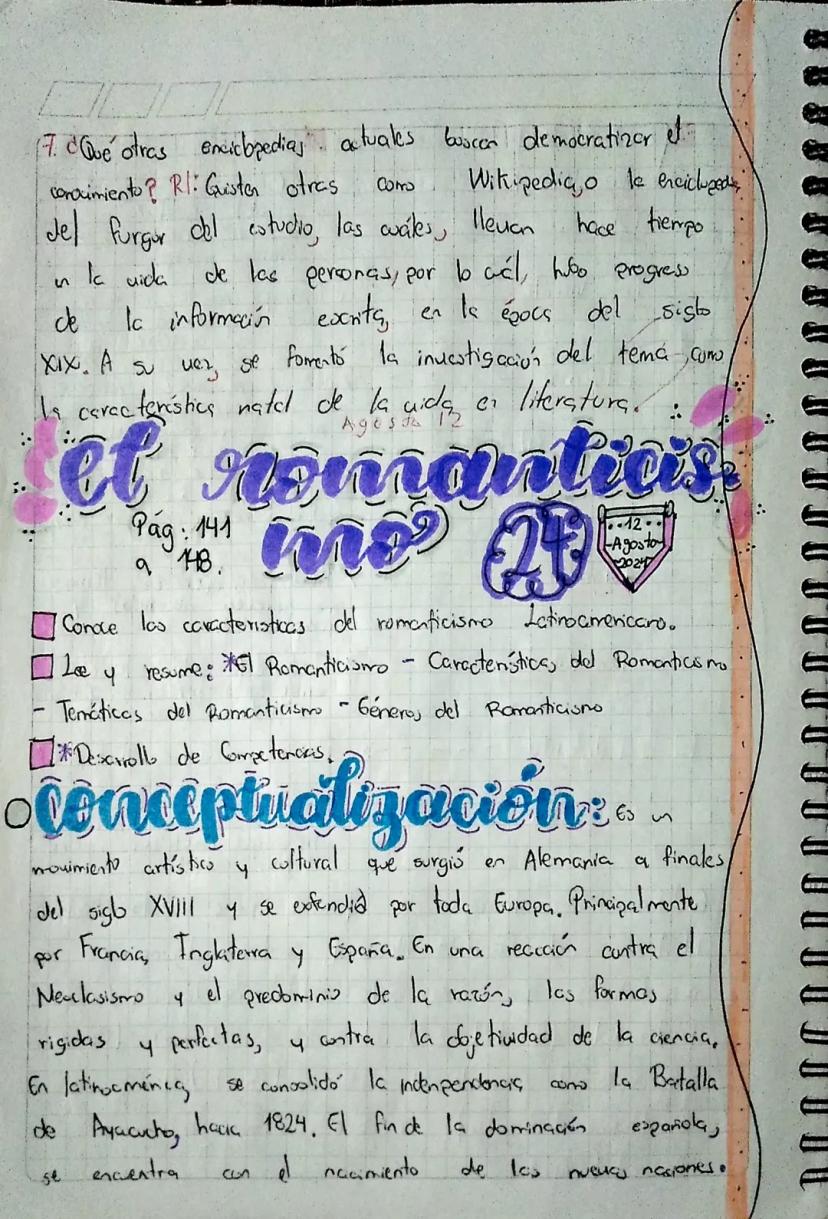 7. ¿Qué otras enciclopedias actuales buscan democratizar el
conocimiento? R/: Existen otras como Wikipedia, o la enciclopedia
del furgor del estudio, las cuáles, llevan hace tiempo
en la vida de las personas, por lo cuál, hubo progreso
de la información escrita, en la época del siglo
XIX. A su vez, se fomentó la investigación del tema, como
la característica natal de la vida en literatura.
Agosto 12
el romanticis-
mo
Pág: 141
a 148.
24
12
Agosto
2024
Conoce las caracteristicas del romanticismo Latinoamericano.
Lee y resume: *El Romanticismo - Características del Romanticismo
- Temáticas del Romanticismo - Géneros del Romanticismo
*Desarrollo de Competencias.
Conceptualización: Es un
movimiento artístico y cultural que surgió en Alemania a finales
del siglo XVIII y se extendió por toda Europa. Principalmente
por Francia, Inglaterra y España. En una reacción contra el
Neoclasismo y el predominio de la razón, las formas
rigidas y perfectas, y contra la objetividad de la ciencia.
En latinoamérica, se consolidó la independencia como la Batalla
de Ayacucho, hacia 1824. El fin de la dominación española,
se encuentra con el nacimiento de las nuevas naciones.